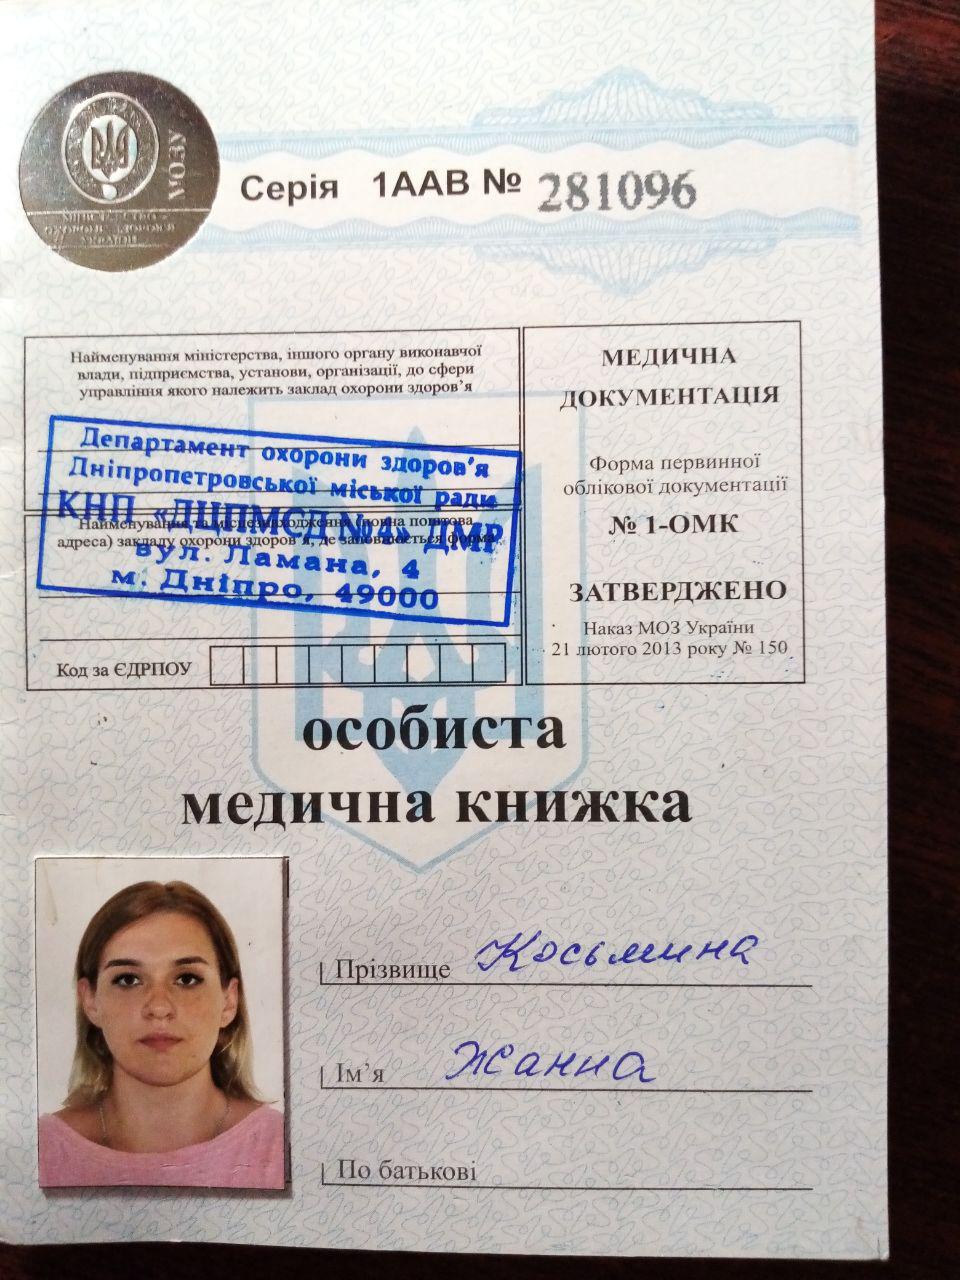 МІНІСТЕРСТВО
ОХОРОНИ ЗДОРОВ'Я
УКРАЇНИ
Серія 1ААВ № 281096
Найменування міністерства, іншого органу виконавчої
влади, підприємства, установи, організації, до сфери
управління якого належить заклад охорони здоров’я
Департамент охорони здоров'я
Дніпропетровської міської ради
КНП «ДЦПМСД №4» ДМР
вул. Ламана, 4
м. Дніпро, 49000
Найменування та місцезнаходження (повна поштова
адреса) закладу охорони здоров’я, де заповнюється форма
Код за ЄДРПОУ
МЕДИЧНА
ДОКУМЕНТАЦІЯ
Форма первинної
облікової документації
№ 1-ОМК
ЗАТВЕРДЖЕНО
Наказ МОЗ України
21 лютого 2013 року № 150
особиста
медична книжка
Прізвище Косьмина
Ім’я Жанна
По батькові